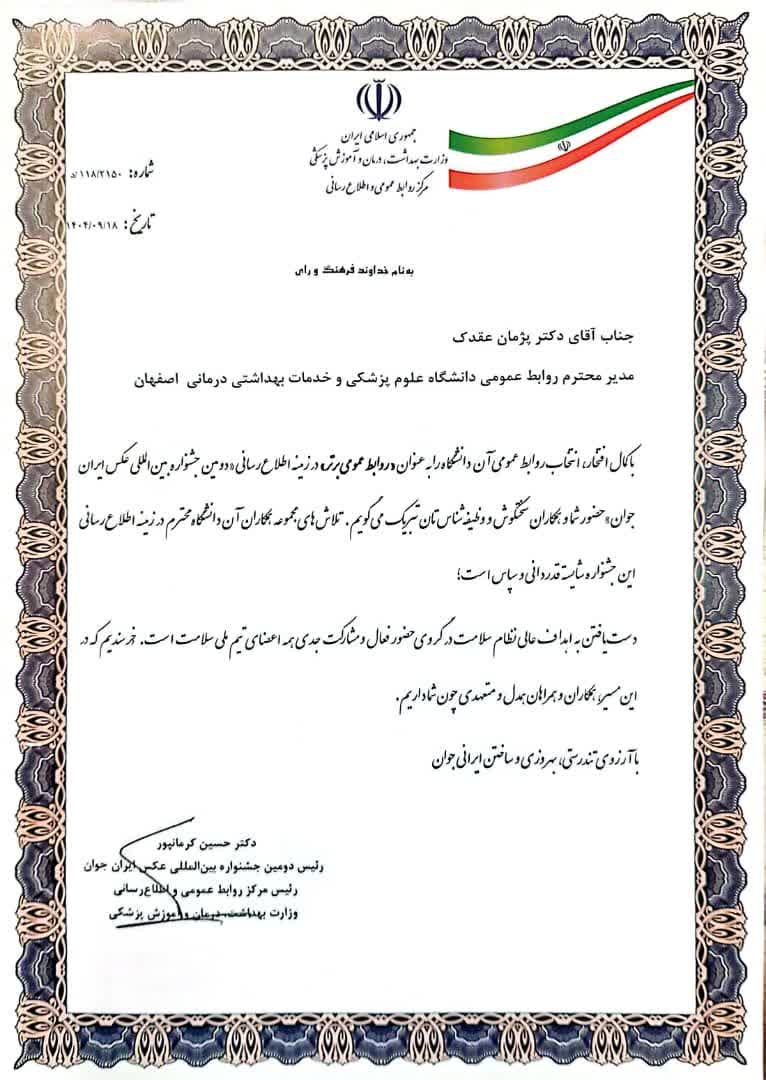 جمهوری اسلامی ایران
وزارت بهداشت، درمان و آموزش پزشکی
مرکز روابط عمومی و اطلاع رسانی
شماره: ۱۱۸/۲۱۵۰/د
تاریخ: ۱۴۰۴/۰۹/۱۸
به نام خداوند فرهنگ و رای
جناب آقای دکتر پژمان عقدک
مدیر محترم روابط عمومی دانشگاه علوم پزشکی و خدمات بهداشتی درمانی اصفهان
با کمال افتخار، انتخاب روابط عمومی آن دانشگاه را به عنوان «روابط عمومی برتر» در زمینه اطلاع رسانی «دومین جشنواره بین المللی عکس ایران
جوان» حضور شما و همکاران سختکوش و وظیفه شناس تان تبریک می گویم. تلاش های مجموعه همکاران آن دانشگاه محترم در زمینه اطلاع رسانی
این جشنواره شایسته قدردانی و سپاس است؛
دست یافتن به اهداف عالی نظام سلامت در گروی حضور فعال و مشارکت جدی همه اعضای تیم ملی سلامت است. خرسندیم که در
این مسیر، همکاران و همراهان همدل و متعهدی چون شما داریم.
با آرزوی تندرستی، بهروزی و ساختن ایرانی جوان
دکتر حسین کرمانپور
رئیس دومین جشنواره بین‌المللی عکس ایران جوان
رئیس مرکز روابط عمومی و اطلاع‌رسانی
وزارت بهداشت، درمان و آموزش پزشکی